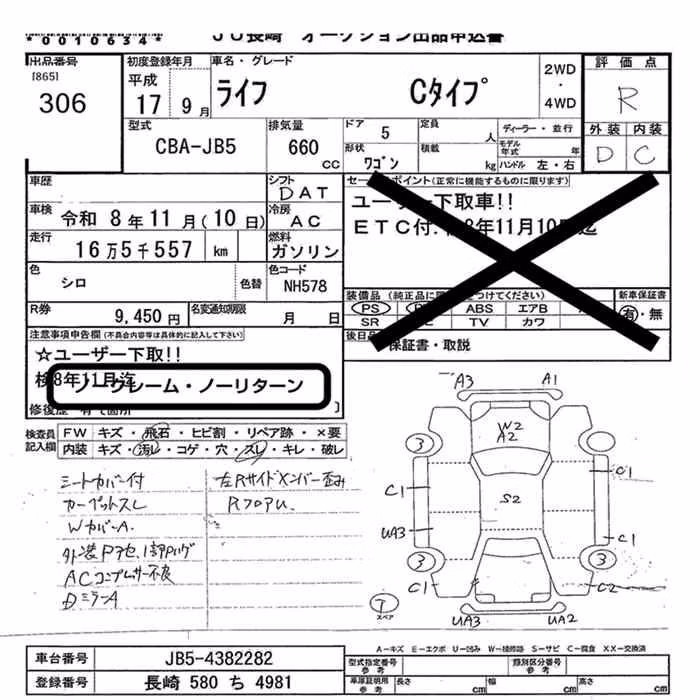 *0010634*
JU長崎 オークション出品申込書
出品番号
[865]
306
初度登録年月
平成
17 9月
車名・グレード
ライフ Cタイプ
2WD
・
4WD
評価点
R
外装 内装
D C
型式
CBA-JB5
排気量
660
CC
ドア 5
形状
ワゴン
定員 人
積載 kg
ディーラー・並行
モデル年式 年
ハンドル 左・右
車歴
シフト
DAT
車検 令和 8年11月(10日)
冷房
AC
走行 16万5千557 km
燃料
ガソリン
色
シロ
色替
色コード
NH578
R券
9,450円
名変通知期限
月 日
セールスポイント(正常に機能するものに限ります)
ユーザー下取車!!
ETC付.検8年11月10日迄
装備品(純正品に
をつけてください)
PS ABS エアB
SR TV カワ
新車保証書
有・無
後日品 保証書・取説
注意事項申告欄(不具合内容等は具体的に記入して下さい)
☆ユーザー下取!!
検8年11月迄
ノークレーム・ノーリターン
修復歴 有で箇所〔 〕
検査員
記入欄
FW キズ・飛石・ヒビ割・リペア跡・×要
内装 キズ・汚レ・コゲ・穴・スレ・キレ・破レ
シートカバー付
カーペットスレ
WカバーA.
ACコンプレッサー不良
DミラーA
左右サイドメンバー歪み
RフロアU.
A3 A1
W2
A2
3
C1 C1
S2
UA3 C1
3 3
C1 C2
UA3 UA2
T
スペア
A-キズ E-エクボ U-凹み W-補修跡 S-サビ C-腐食 XX-交換済
車台番号 JB5-4382282
登録番号 長崎 580 ち 4981
型式指定番号
参考
類別区分番号
参考
車庫証明用
参考
長さ cm
幅 cm
高さ cm